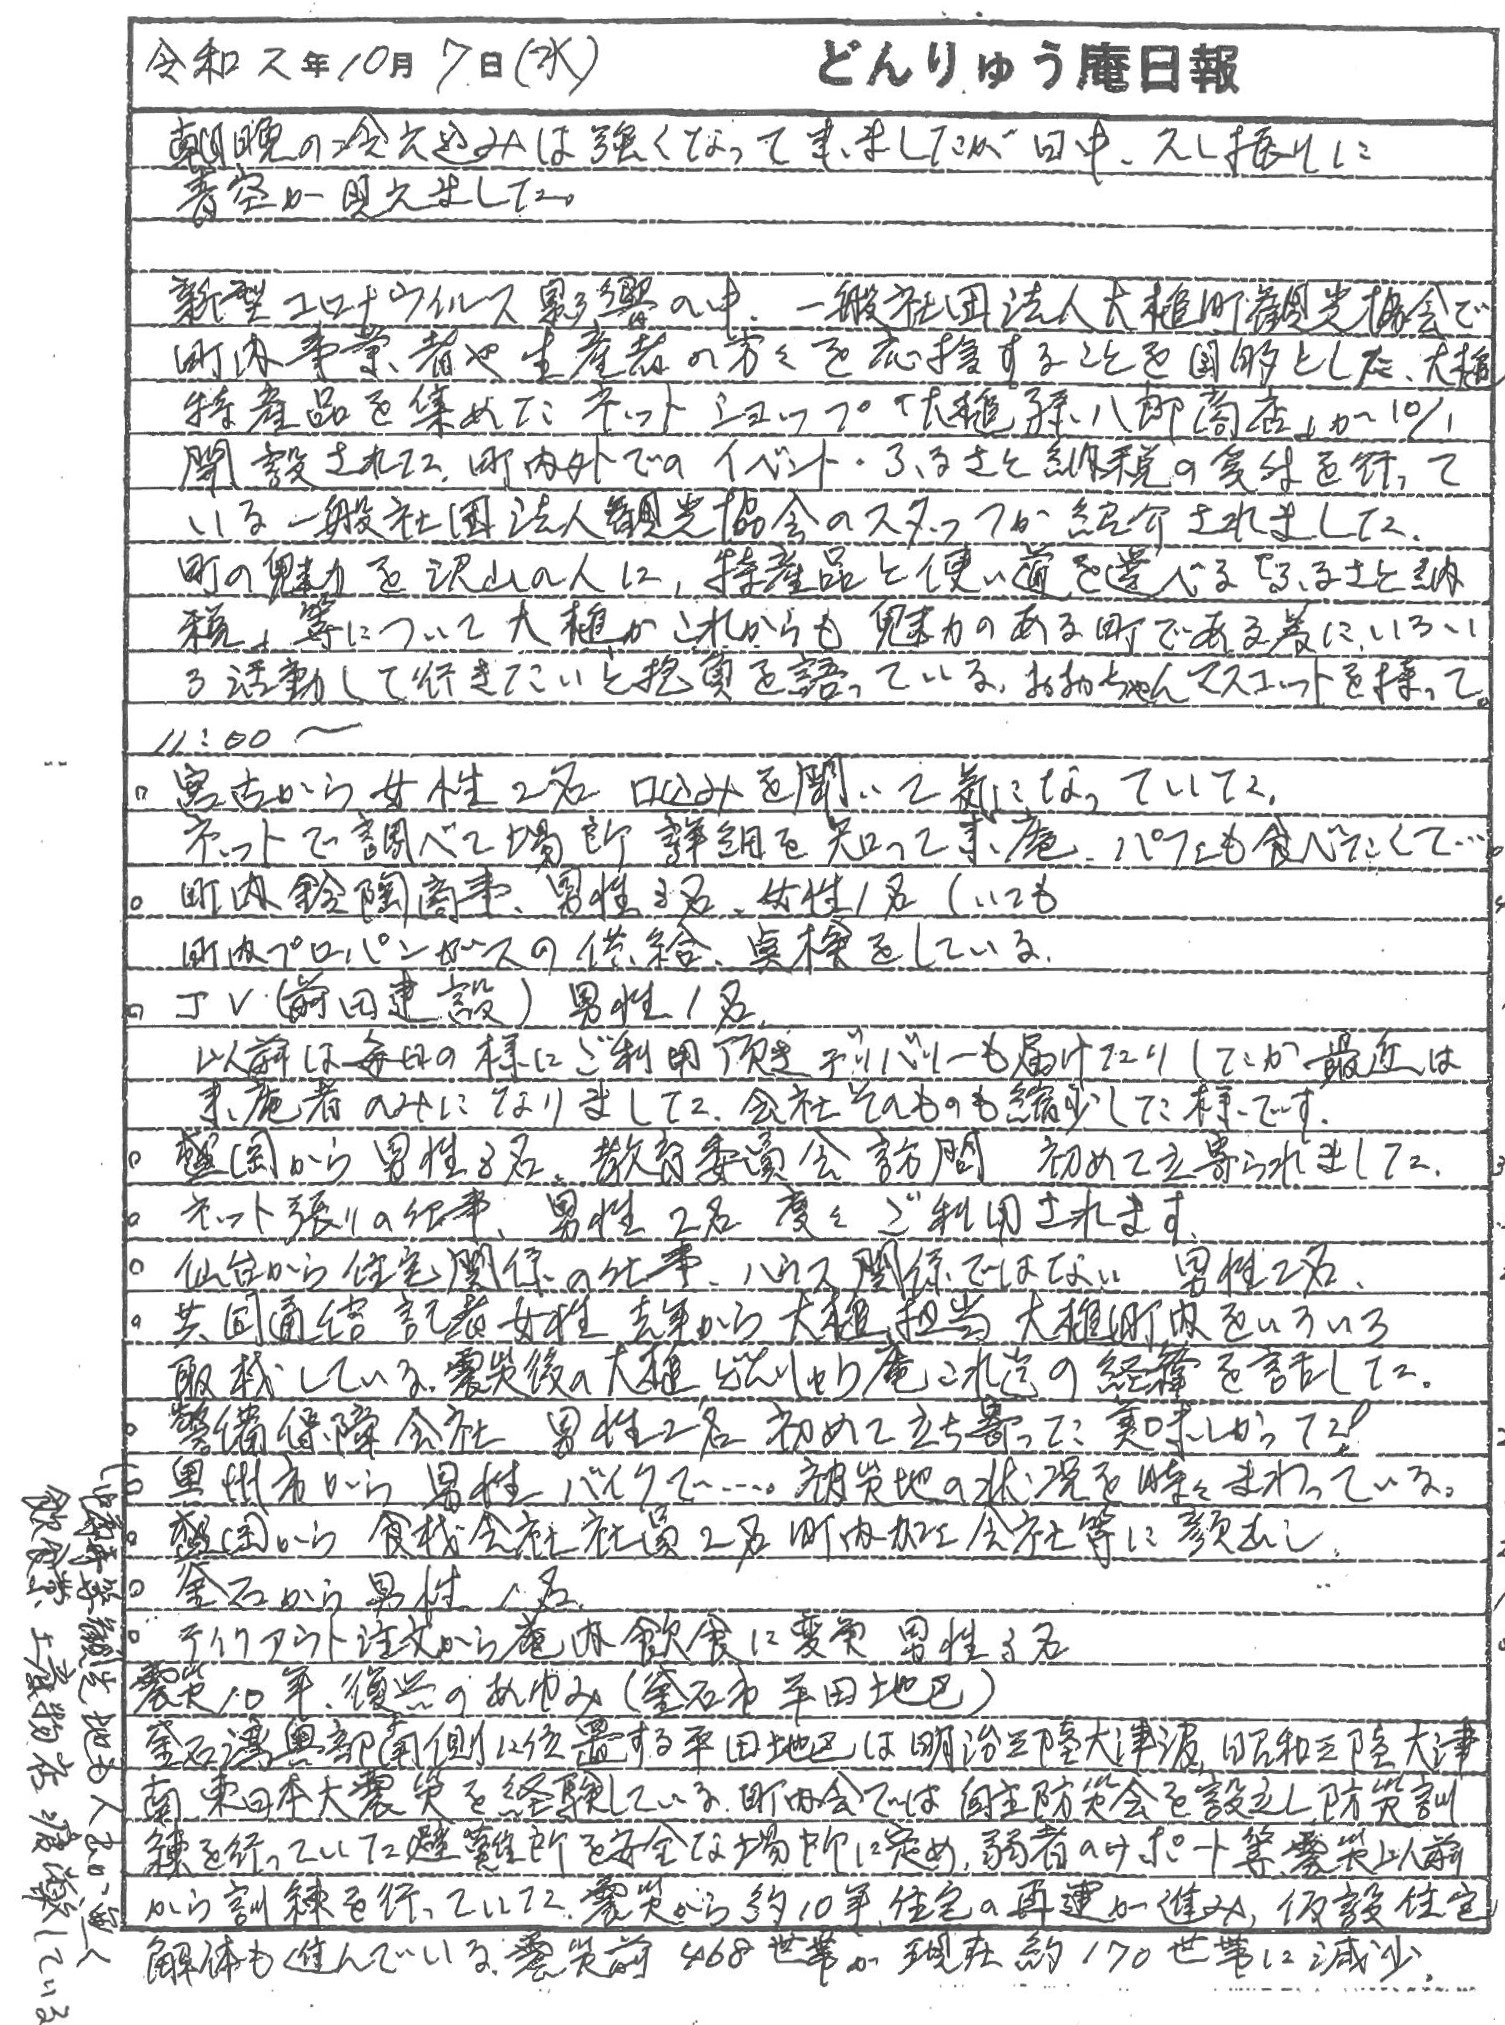 令和2年10月7日(水) どんりゅう庵日報
朝晩の冷え込みは強くなって来ましたが日中、久し振りに
青空が見えました。
新型コロナウイルス影響の中、一般社団法人大槌町観光協会で
町内事業者や生産者の方々を応援することを目的とした、大槌
特産品を集めたネットショップ「大槌孫八郎商店」が10/1
開設された。町内外でのイベント・ふるさと納税の受付を行って
いる一般社団法人観光協会のスタッフが紹介されました。
町の魅力を沢山の人に、特産品と使い道を選べる「ふるさと納
税」等について大槌がこれからも魅力のある町である為に、いろい
ろ活動して行きたいと抱負を語っている。おおちゃんマスコットを持って。
11:00〜
○宮古から女性2名 口込みを聞いて気になっていた。
ネットで調べて場所詳細を知って来庵、パフェも食べたくて…。
○町内鈴陶商事、男性3名、女性1名(いつも
町内プロパンガスの供給、点検をしている。
○JV(前田建設)男性1名。
以前は毎日の様にご利用頂きデリバリーも届けたりしたが最近は
来庵者のみになりました。会社そのものも縮少した様です。
○盛岡から男性3名、教育委員会訪問 初めて立寄られました。
○ネット張りの仕事、男性2名 度々ご利用されます。
○仙台から住宅関係の仕事、ハウス関係ではない 男性2名、
○共同通信記者女性 去年から大槌担当 大槌町内をいろいろ
取材している。震災後の大槌どんりゅう庵これ迄の経緯を話した。
○警備保障会社 男性2名 初めて立ち寄った美味しかった!
○奥州市から男性 バイクで……。被災地の状況を時々まわっている。
○盛岡から食材会社社員2名 町内加工会社等に顔出し。
○釜石から男性1名。
○テイクアウト注文から庵内飲食に変更 男性3名
震災10年、復興のあゆみ(釜石市平田地区)
釜石湾奥部南側に位置する平田地区は明治三陸大津波、昭和三陸大津
東日本大震災を経験している。町内会では自主防災会を設立し防災訓
練を行っていた避難所を安全な場所に定め、弱者のサポート等震災以前
から訓練を行っていた。震災から約10年、住宅の再建が進み、仮設住宅
解体も進んでいる。震災前468世帯が現在約170世帯に減少。
観光地も人出が
飲食業 土産物店 廃業している